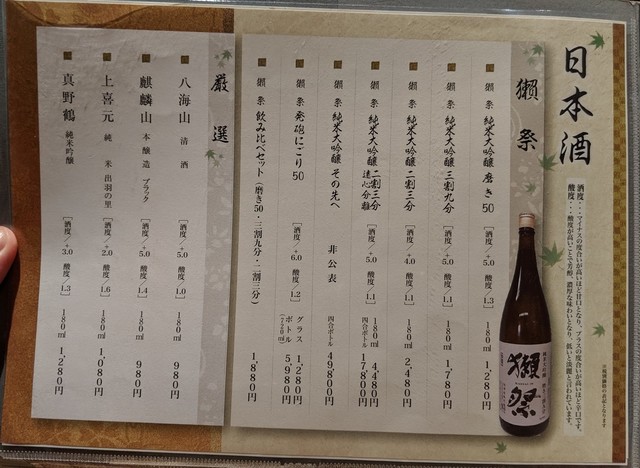 日本酒
酒度・・・マイナスの度合いが高いほど甘口となり、プラスの度合いが高いほど辛口です。
酸度・・・酸度が高いことで芳醇、濃厚な味わいとなり、低いと淡麗と言われています。
獺祭
獺祭 純米大吟醸 磨き50 [酒度/+5.0 酸度/1.3] 180ml 1,280円
獺祭 純米大吟醸 三割九分 [酒度/+5.0 酸度/1.1] 180ml 1,780円
獺祭 純米大吟醸 二割三分 [酒度/+4.0 酸度/1.1] 180ml 2,480円
獺祭 純米大吟醸 二割三分 遠心分離 [酒度/+5.0 酸度/1.1] 180ml 4,480円
四合ボトル 17,800円
獺祭 純米大吟醸 その先へ 非公表 四合ボトル 49,800円
獺祭 発砲にごり50 [酒度/+6.0 酸度/1.2] グラス 1,280円
ボトル 5,980円
獺祭 飲み比べセット(磨き50・三割九分・二割三分) 1,880円
獺祭
厳選
八海山 清酒 [酒度/+5.0 酸度/1.0] 180ml 980円
麒麟山 本醸造 ブラック [酒度/+5.0 酸度/1.4] 180ml 980円
上喜元 純米 出羽の里 [酒度/+2.0 酸度/1.6] 180ml 1,080円
真野鶴 純米吟醸 [酒度/+3.0 酸度/1.3] 180ml 1,280円